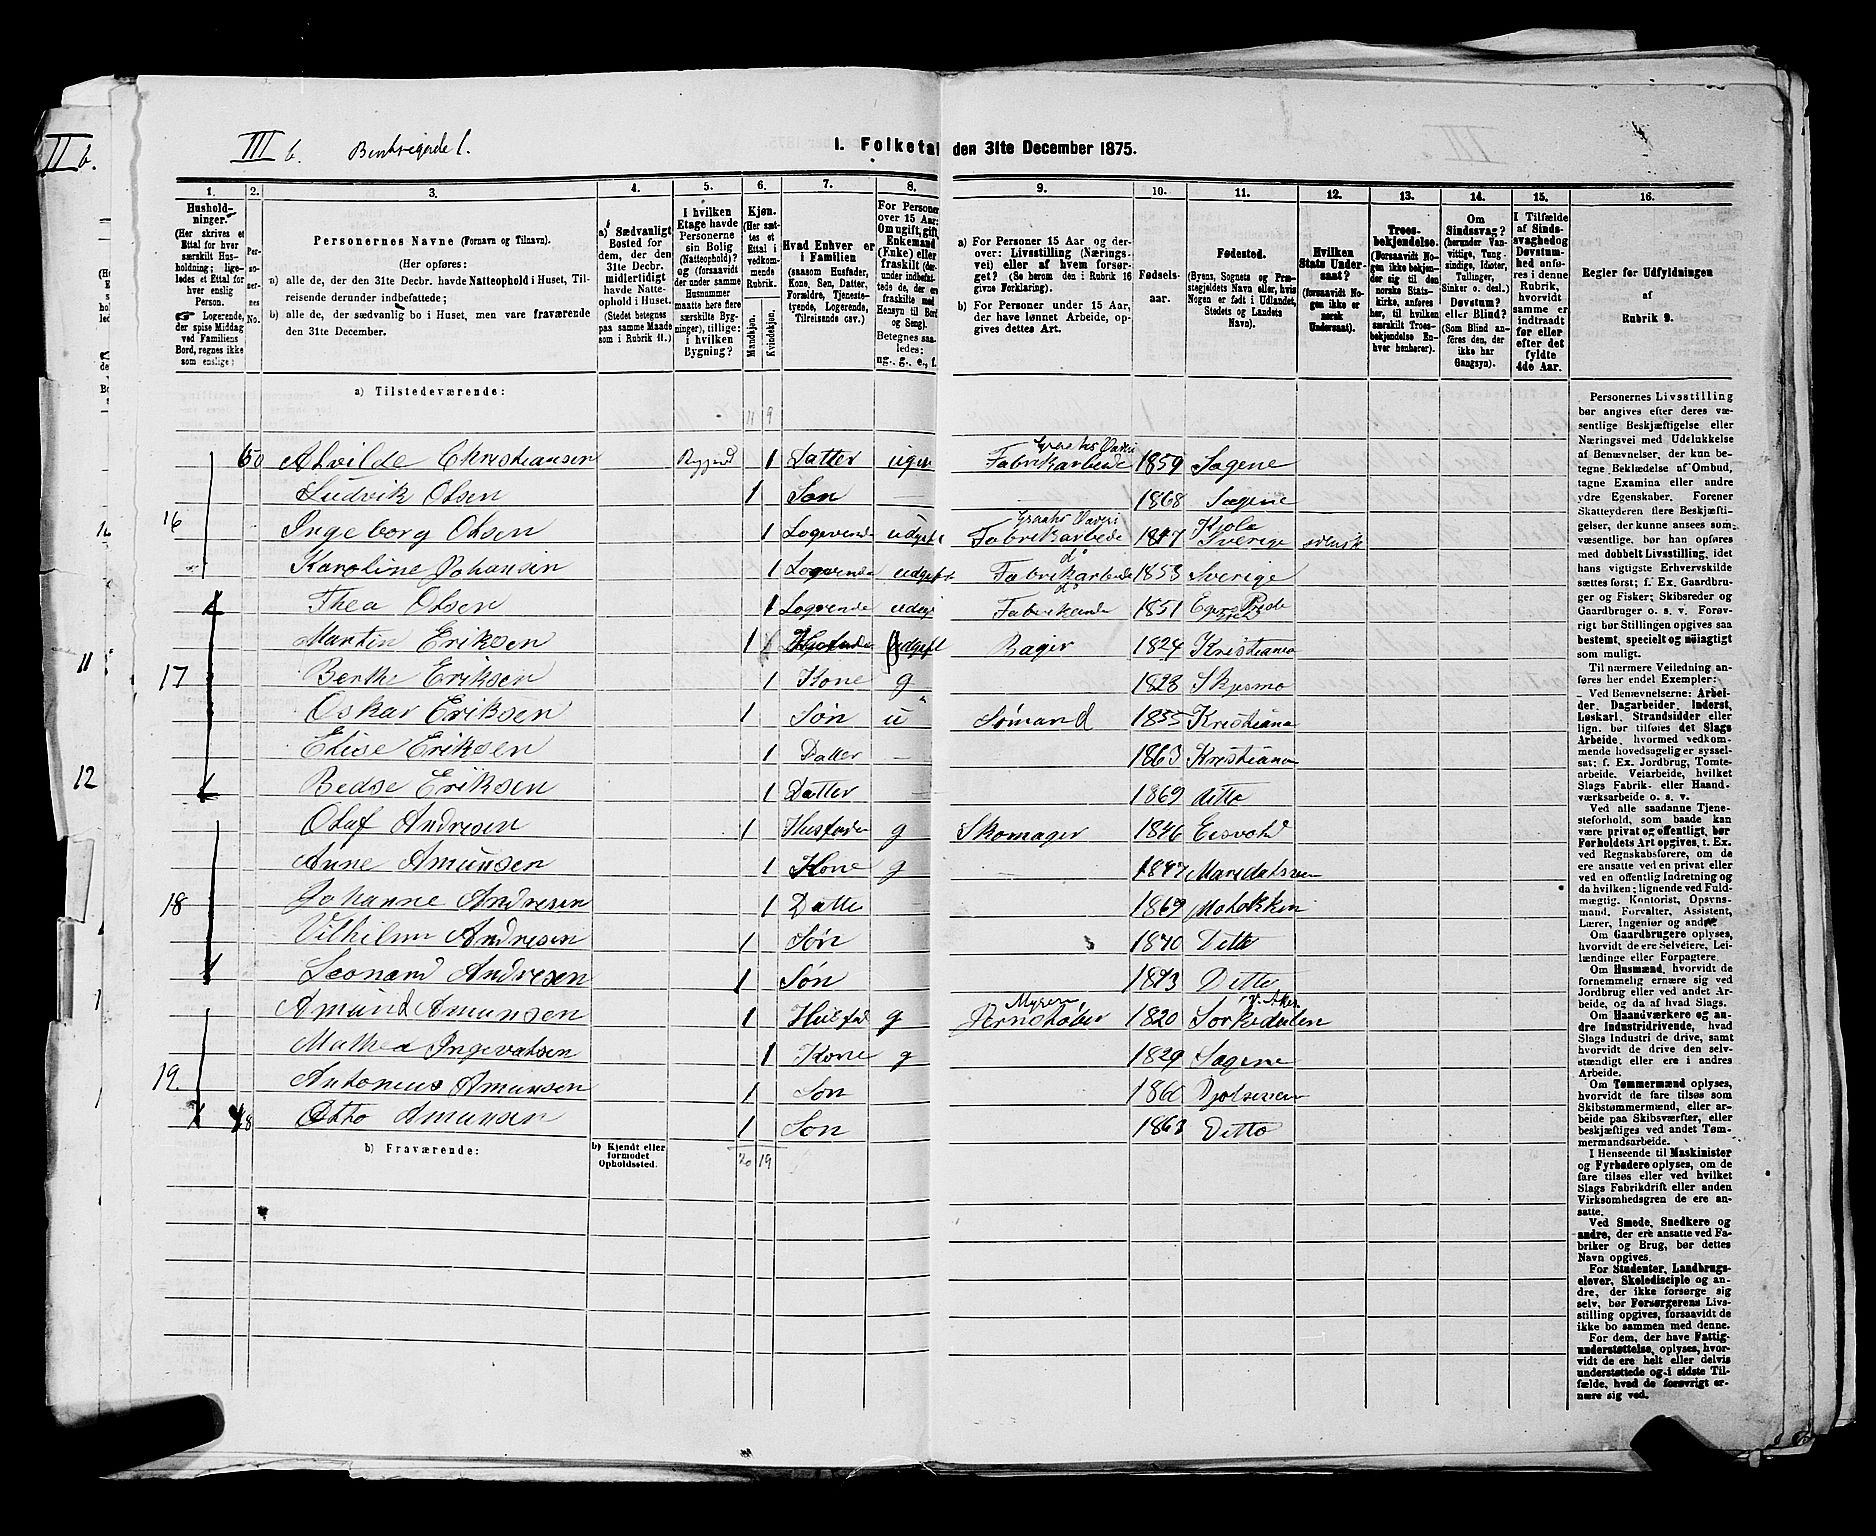 II b.
III b.
1. Folketal den 31te December 1875.
1. 2. 3. 4. 5. 6. 7. 8. 9. 10. 11. 12. 13. 14. 15. 16.
Husholdninger. (Her skrives et Ettal for hver særskilt Husholdning; ligeledes et Ettal for hver enslig Person. Logerende, der spise Middag ved Familiens Bord, regnes ikke som enslige.)
Personernes No.
Personernes Navne (Fornavn og Tilnavn).
(Her opføres:
a) alle de, der den 31te Decbr. havde Natteophold i Huset, Tilreisende derunder indbefattede;
b) alle de, der sædvanlig bo i Huset, men vare fraværende den 31te December.
a) Sædvanligt Bosted for dem, der den 31te Decbr. midlertidigt havde Natteophold i Huset. (Stedet betegnes paa samme Maade som i Rubrik 11.)
I hvilken Etage havde Personerne sin Bolig (Natteophold)? og (forsaavidt der under samme Husnummer maatte høre flere særskilte Bygninger), tillige: i hvilken Bygning?
Kjøn. (Her sættes et Ettal i vedkommende Rubrik.
Mandkjøn. Kvindekjøn.
Hvad Enhver er i Familien (saasom Husfader, Kone, Søn, Datter, Forældre, Tjenestetyende, Logerende, Tilreisende osv.)
For Personer over 15 Aar: Om ugift, gift, Enkemand (Enke) eller fraskilt (derunder indbefattede de, der ere fraskilte med Hensyn til Bord og Seng). Betegnes saaledes: ug., g., e., f.
a) For Personer 15 Aar og derover: Livsstilling (Næringsvei) eller af hvem forsørget (Se herom den i Rubrik 16 givne Forklaring).
b) For Personer under 15 Aar, der have lønnet Arbeide, opgives dettes Art.
Fødselsaar.
Fødested. (Byens, Sognets og Præstegjeldets Navn eller, hvis Nogen er født i Udlandet, Stedets og Landets Navn).
Hvilken Stats Undersaat? (forsaavidt Nogen ikke er norsk Undersaat).
Troesbekjendelse. (Forsaavidt Nogen ikke bekjender sig til den norske Statskirke, anføres her, til hvilken særskilt Troesbekjendelse Enhver henhører).
Om Sindssvag? (herunder Vanvittige, Tungsindige, Idioter, Tullinger, Sinker o. desl.) Døvstum? eller Blind? (Som Blind anføres den, der ikke har Gangsyn).
I Tilfælde af Sindssvaghed og Døvstumhed anføres i denne Rubrik, hvorvidt samme er indtraadt før eller efter det fyldte 4de Aar.
Regler før Udfyldningen af Rubrik 9.
a) Tilstedeværende:
11 9
50 Alvilde Christiansen 1 Datter Graahs Væveri 1859 Sagene
Ludvik Olsen 1 Søn 1868 Sagene
16 Ingeborg Olsen 1 Graahs Væveri Sverige svensk
Karoline Johansen 1 d° 1853 Sverige
Thea Olsen 1 d° 1851
Martin Eriksen 1 1824 Kristiania
17 Berthe Eriksen 1 Kone g 1828
Oskar Eriksen 1 Søn u Sømand 1855 Kristiania
Elise Eriksen 1 Datter 1863 Kristiania
Eriksen 1 Datter 1869 ditto
Oluf Andresen 1 Husfader g Skomager 1846 Eisvold
Anne Amundsen 1 Kone g 1847
18 Johanne Andresen 1 1869
Vilhelm Andresen 1 Søn 1870 Ditto
Leonard Andresen 1 Søn 1873 Ditto
Amund Amunsen 1 g Myren 1820 Sørkedalen V. Aker
Mathea Ingevalsen 1 Kone g 1829 Sagene
19 Antonius Amunsen 1 Søn
Otto Amunsen 1 Søn 1863 Ditto
11
12
b) Fraværende:
b) Kjendt eller formodet Opholdssted.
20 19
Personernes Livsstilling bør angives efter deres væsentlige Beskjæftigelse eller Næringsvei med Udelukkelse af Benævnelser, der kun betegne Beklædelse af Ombud, tagne Examina eller andre ydre Egenskaber. Forener Skatteyderen flere Beskjæftigelser, der kunne ansees som væsentlige, bør han opføres med dobbelt Livsstilling, idet hans vigtigste Erhvervskilde sættes først; f. Ex. Gaardbruger og Fisker; Skibsreder og Gaardbruger o. s. v. Forøvrigt bør Stillingen opgives saa bestemt, specielt og nøiagtigt som muligt.
Til nærmere Veiledning anføres her endel Exempler:
Ved Benævnelserne: Arbeider, Dagarbeider, Inderst, Løskarl, Strandsidder eller lign. bør tilføies det Slags Arbeide, hvormed vedkommende hovedsagelig er sysselsat; f. Ex. Jordbrug, Tomtearbeide, Veiarbeide, hvilket Slags Fabrik- eller Haandværksarbeide o. s. v.
Ved alle saadanne Tjenesteforhold, som baade kan være privat og offentligt, bør Forholdets Art opgives, t. Ex. ved Regnskabsførere, om de ere ansatte ved en privat eller ved en offentlig Indretning og da hvilken; lignende ved Fuldmægtig, Kontorist, Opsynsmand, Forvalter, Assistent, Lærer, Ingeniør og andre.
Om Gaardbrugere oplyses, hvorvidt de ere Selveiere, Leilændinge eller Forpagtere.
Om Husmænd, hvorvidt de fornemmelig ernære sig ved Jordbrug eller ved andet Arbeide, og da af hvad Slags.
Om Haandværkere og andre Industridrivende, hvad Slags Industri de drive, samt hvorvidt de drive den selvstændigt eller ere i andres Arbeide.
Om Tømmermænd oplyses, hvorvidt de fare tilsøs som Skibstømmermænd, eller arbeide paa Skibsværfter, eller beskjæftiges ved andet Tømmermandsarbeide.
I Henseende til Maskinister og Fyrbødere oplyses, om de fare tilsøs eller ved hvilket Slags Fabrikdrift eller anden Virksomhedsgren de ere ansatte.
Ved Smede, Snedkere og andre, der ere ansatte ved Fabriker og Brug, bør dettes Navn opgives.
For Studenter, Landbrugselever, Skoledisciple og andre, der ikke forsørge sig selv, bør Forsørgerens Livsstilling opgives, forsaavidt de ikke bo sammen med denne.
For dem, der have Fattigunderstøttelse, oplyses, hvorvidt de ere helt eller delvis understøttede og i sidste Tilfælde, hvad de forøvrigt ernære sig ved.